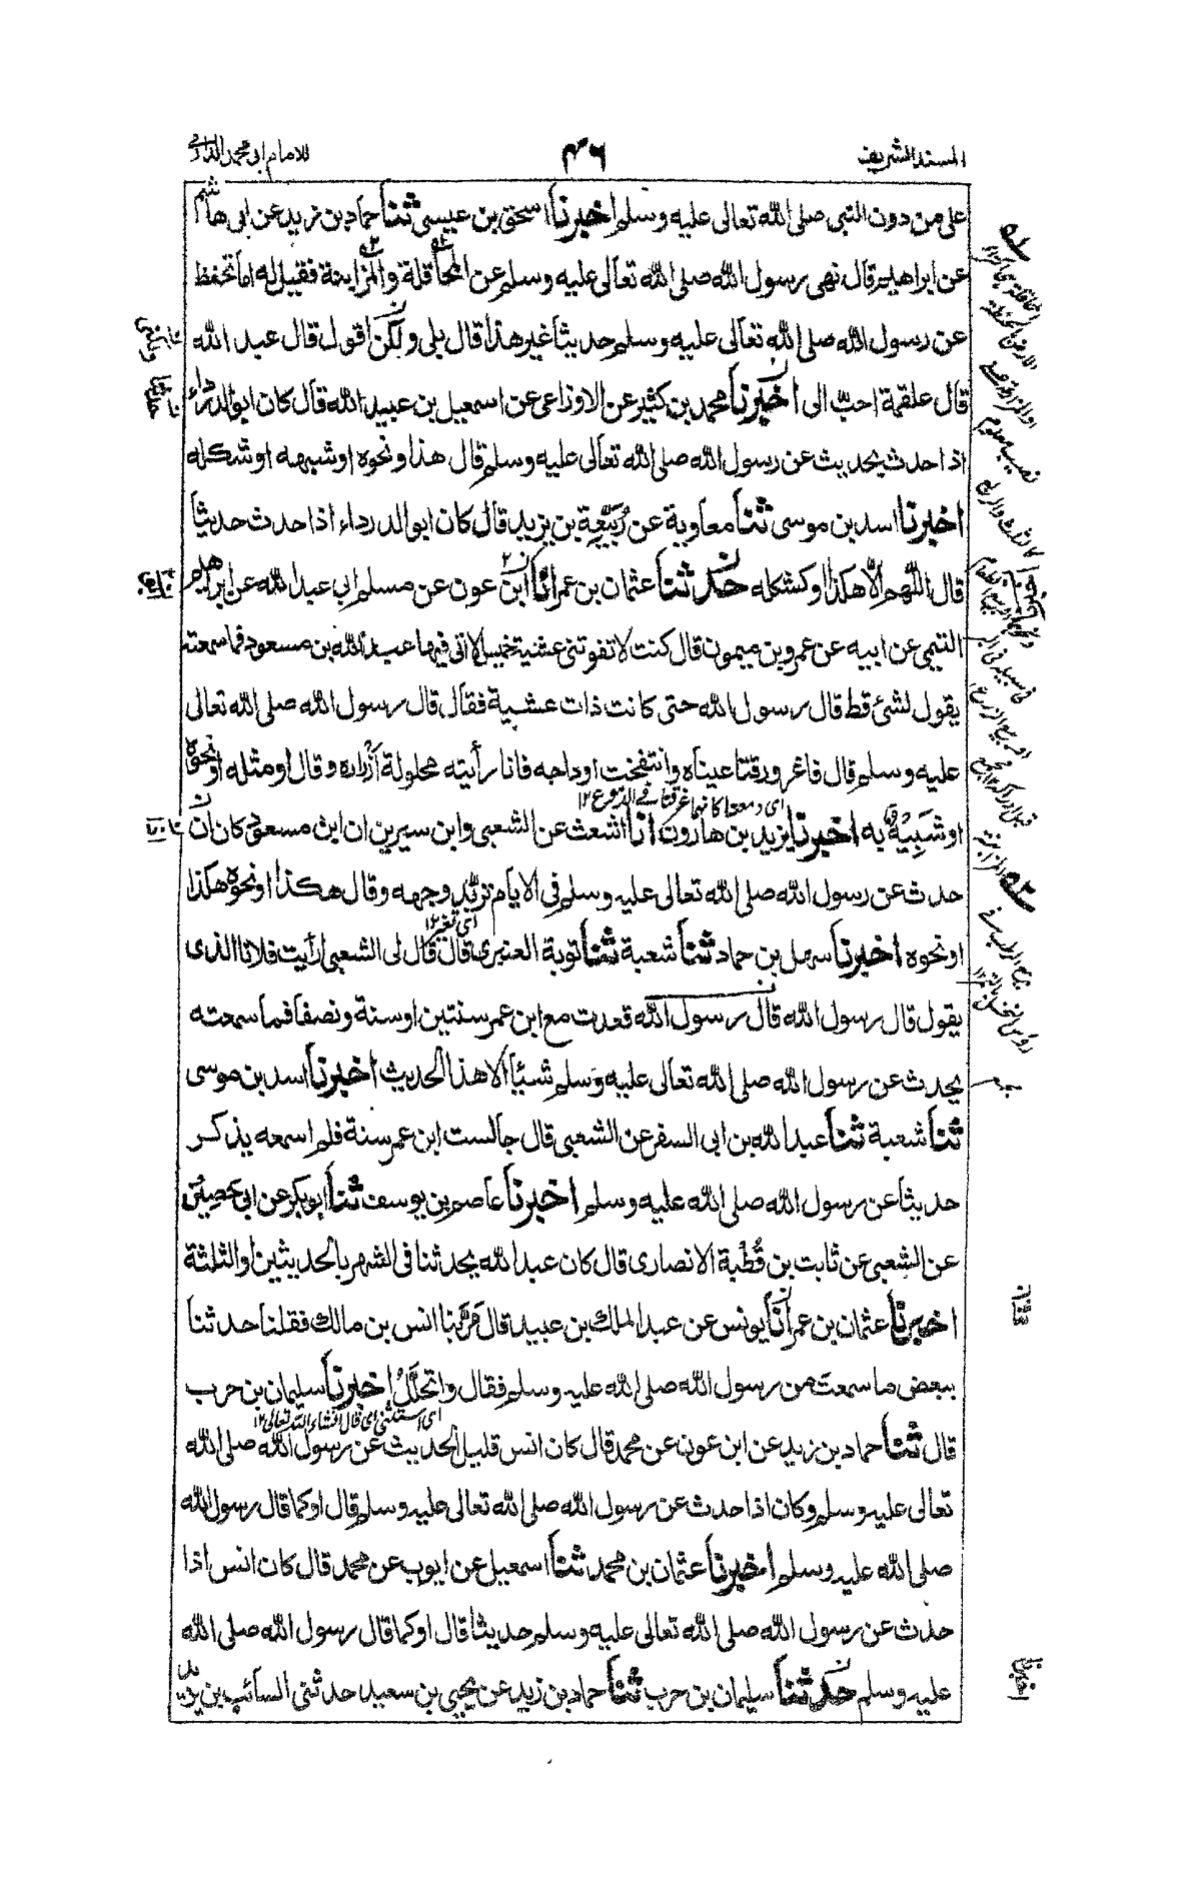 المسند الشريف
٤٦
للامام ابى محمد الدارمى
على من دون النبى صلى الله تعالى عليه وسلم اخبرنا اسحق بن عيسى ثنا حماد بن زيد عن ابى هاشم
عن ابراهيم قال نهى رسول الله صلى الله تعالى عليه وسلم عن المحاقلة والمزابنة فقيل له اما تحفظ
عن رسول الله صلى الله تعالى عليه وسلم حديثا غير هذا قال بلى ولكن اقول قال عبد الله
قال علقمة احب الى اخبرنا محمد بن كثير عن الاوزاعى عن اسمعيل بن عبيد الله قال كان ابو الدرداء
اذا حدث بحديث عن رسول الله صلى الله تعالى عليه وسلم قال هذا ونحوه او شبهه او شكله
اخبرنا اسد بن موسى ثنا معاوية عن ربيعة بن يزيد قال كان ابو الدرداء اذا حدث حديثا
قال اللهم الا هكذا او كشكله حدثنا عثمان بن عمر انا ابن عون عن مسلم ابى عبد الله عن ابراهيم
التيمى عن ابيه عن عمرو بن ميمون قال كنت لا تفوتنى عشية خميس الا اتى فيها عبد الله بن مسعود فما سمعته
يقول لشئ قط قال رسول الله حتى كانت ذات عشية فقال قال رسول الله صلى الله تعالى
عليه وسلم قال فاغرورقتا عيناه وانتفخت اوداجه فانا رأيته محلولة ازراره وقال او مثله او نحوه
اى دمعتا كانهما غرقتا فى الدموع ١٢
او شبيه به اخبرنا يزيد بن هارون انا اشعث عن الشعبى وابن سيرين ان ابن مسعود كان ان
حدث عن رسول الله صلى الله تعالى عليه وسلم فى الايام تربد وجهه وقال هكذا او نحوه هكذا
اى تغير ١٢
او نحوه اخبرنا سهل بن حماد ثنا شعبة ثنا توبة العنبرى قال قال لى الشعبى ارأيت فلانا الذى
يقول قال رسول الله قال رسول الله قعدت مع ابن عمر سنتين او سنة ونصفا فما سمعته
يحدث عن رسول الله صلى الله تعالى عليه وسلم شيئا الا هذا الحديث اخبرنا اسد بن موسى
ثنا شعبة ثنا عبد الله بن ابى السفر عن الشعبى قال جالست ابن عمر سنة فلم اسمعه يذكر
حديثا عن رسول الله صلى الله عليه وسلم اخبرنا عاصم بن يوسف ثنا ابو بكر عن ابى حصين
عن الشعبى عن ثابت بن قطبة الانصارى قال كان عبد الله يحدثنا فى الشهر بالحديثين او الثلثة
اخبرنا عثمان بن عمر انا يونس عن عبد الملك بن عبيد قال مر بنا انس بن مالك فقلنا حدثنا
ببعض ما سمعت من رسول الله صلى الله عليه وسلم فقال واتحلل اخبرنا سليمان بن حرب
اى استثنى اى قال انشاء الله تعالى ١٢
قال ثنا حماد بن زيد عن ابن عون عن محمد قال كان انس قليل الحديث عن رسول الله صلى الله
تعالى عليه وسلم وكان اذا حدث عن رسول الله صلى الله تعالى عليه وسلم قال او كما قال رسول الله
صلى الله عليه وسلم اخبرنا عثمان بن محمد ثنا اسمعيل عن ايوب عن محمد قال كان انس اذا
حدث عن رسول الله صلى الله تعالى عليه وسلم حديثا قال او كما قال رسول الله صلى الله
عليه وسلم حدثنا سليمان بن حرب ثنا حماد بن زيد عن يحيى بن سعيد حدثنى السائب بن يزيد